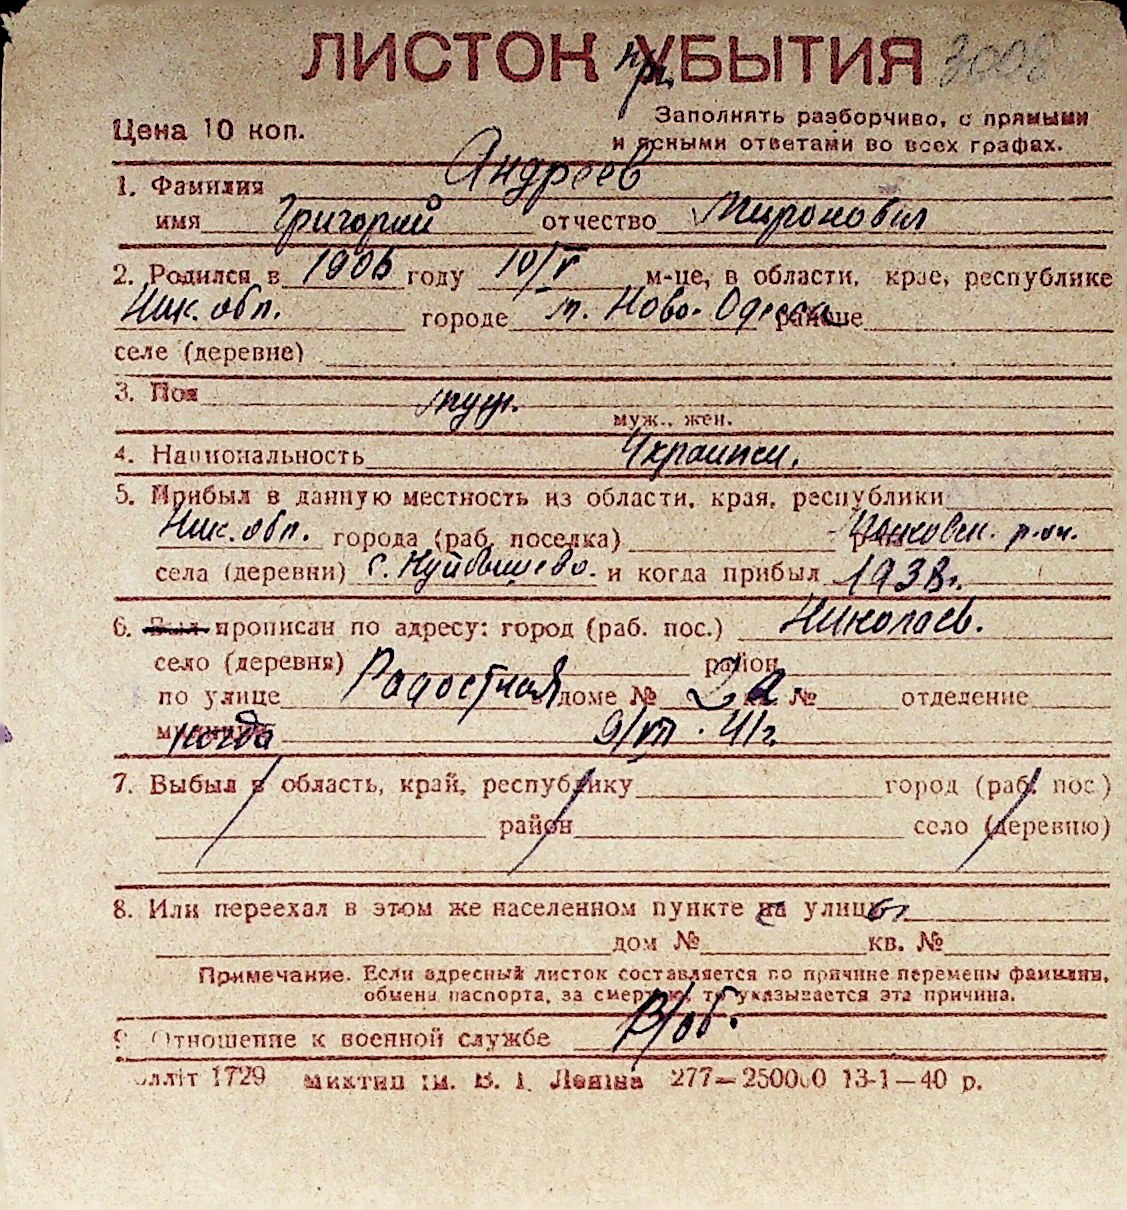 ЛИСТОК пр. УБЫТИЯ 3008
Цена 10 коп.
Заполнять разборчиво, с прямыми
и ясными ответами во всех графах.
1. Фамилия Андреев
имя Григорий отчество Миронович
2. Родился в 1906 году 10/V м-це, в области, крае, республике
Ник. обл. городе м. Ново-Одесса районе
селе (деревне)
3. Пол муж.
муж., жен.
4. Национальность Украинец.
5. Прибыл в данную местность из области, края, республики
Ник. обл. города (раб. поселка) р-он.
села (деревни) с. Куйбышево. и когда прибыл 1938г.
6. Был прописан по адресу: город (раб. пос.) Николаев.
село (деревня) район
по улице Радостная в доме № 2а кв. № отделение
милиции когда 9/VII. 41г.
7. Выбыл в область, край, республику город (раб. пос.)
район село (деревню)
8. Или переехал в этом же населенном пункте на улицу
дом № кв. №
Примечание. Если адресный листок составляется по причине перемены фамилии,
обмена паспорта, за смертью, то указывается эта причина.
9. Отношение к военной службе В/об.
олліт 1729 Миктип ім. В. І. Леніна 277—250000 13-1—40 р.